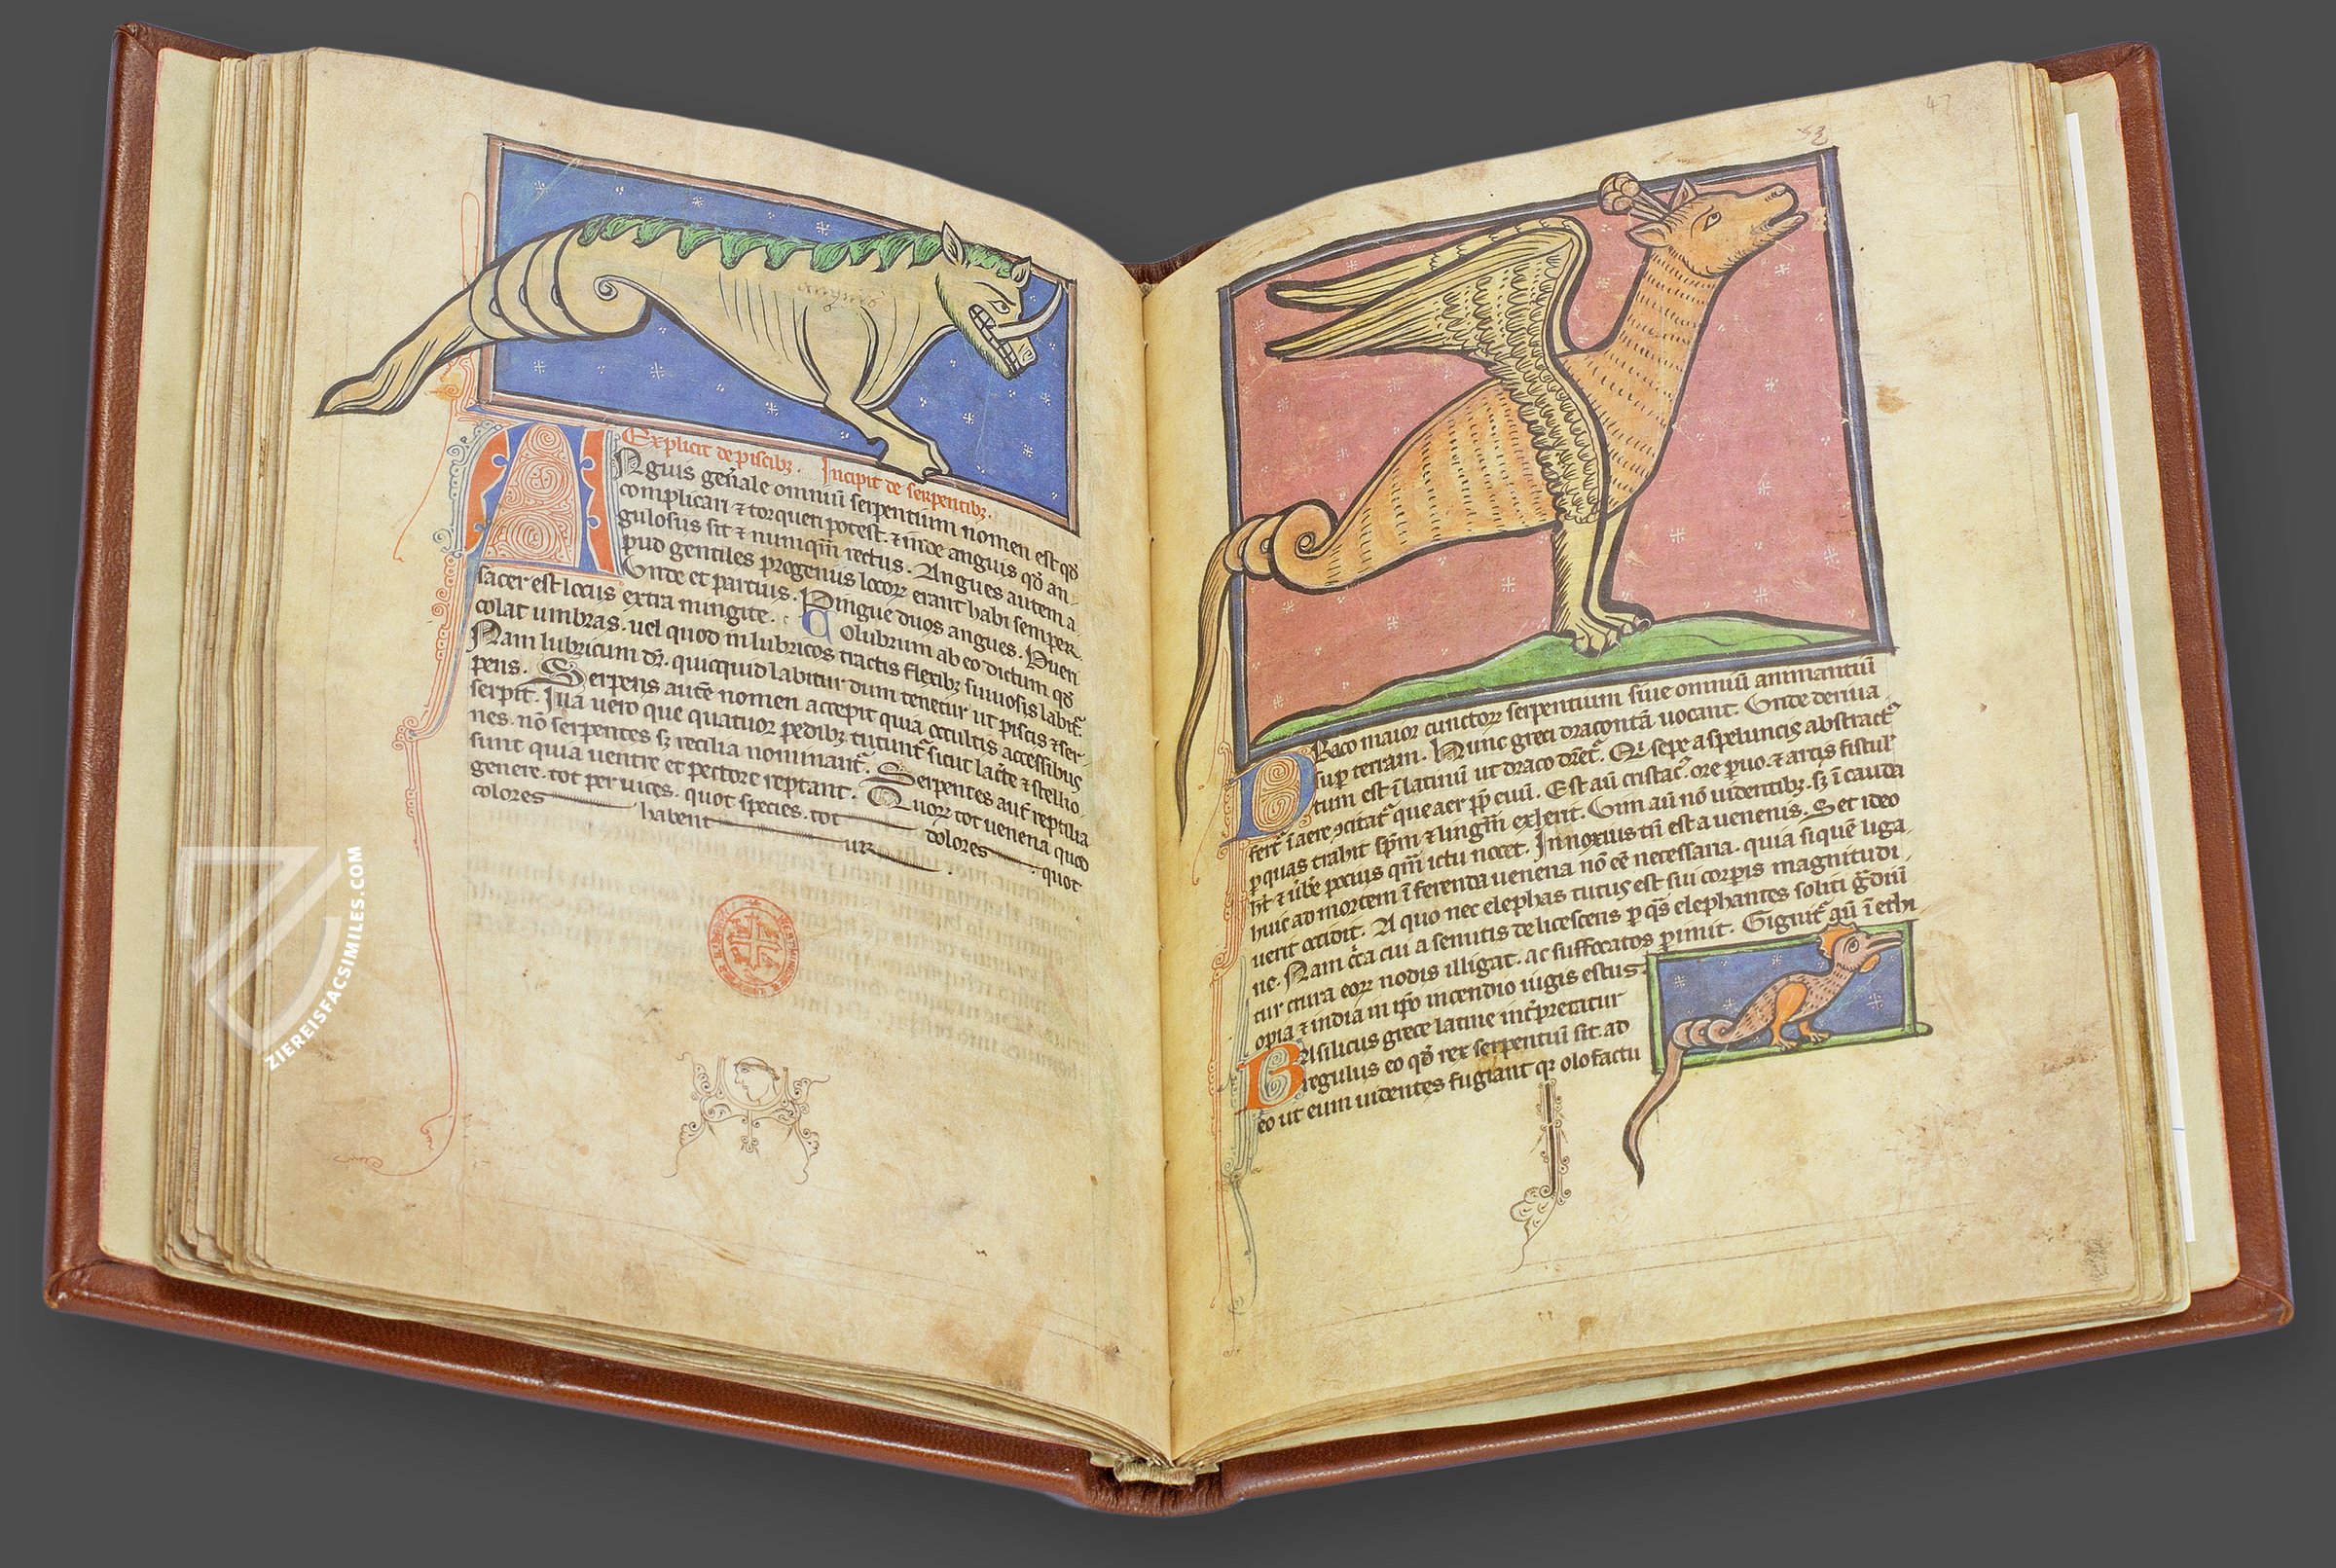 Explicit de piscibꝫ. Incipit de serpentibꝫ.
Anguis gen̄ale omniū serpentium nomen est qđ
complicari ⁊ torqueri potest. ⁊ inde anguis qđ an-
gulosus sit ⁊ numqm̄ rectus. Angues autem a-
pud gentiles progenius locoꝝ erant habi semper.
Unde et parsius. Pingue duos angues. Pueri
sacer est locus extra mingite. Colubrum ab eo dictum qđ
colat umbras. uel quod in lubricos tractis flexibꝫ sinuosis labit̄.
Nam lubricum dr̄. quicquid labitur dum tenetur ut piscis ⁊ ser-
pens. Serpens autē nomen accepit quia occultis accessibus
serpit. Illa uero que quatuor pedibꝫ nitunt̄ sicut lac̄te ⁊ stellio-
nes. nō serpentes sꝫ reptilia nominant̄. Serpentes aut̄ reptilia
sunt quia uentre et pectore reptant. Quoꝝ tot uenena quod
genere. tot per uices. quot species. tot dolores quot
colores habent ur
47
52
Draco maior cunctoꝝ serpentium siue omniū animantiū
sup̄ terram. Hunc greci dracontā uocant. Unde deriua-
tum est ī latinū ut draco dr̄et̄. Qi sepe a speluncis abstract᷒
fert̄ ī aere ↄcitat̄ que aer pp̄ eum̄. Est aū cristat᷒. ore p̄uo. ⁊ artis fistul᷒
p̄ quas trahit sp̄m ⁊ lingm̄ exserit. Uim aū nō ī dentibꝫ. sꝫ ī cauda
ht̄ ⁊ ūbe pocius qm̄ ictu nocet. Innoxius tn̄ est a uenenis. Set ideo
huic ad mortem īferenda uenena nō eē necessaria. quia si quē liga-
uerit occidit. A quo nec elephas tutus est sui corpis magnitudi-
ne. Nam c̄ca cui a semitis delicescens p̄ qs̄ elephantes soliti ḡdiū
tur crura eoꝝ nodis illigat. ac suffocatos p̄imit. Gignit̄ aū ī ethi
opia ⁊ india in ip̄o incendio iugis estus.
Basilicus grece latine int̄pretatur
regulus eo qđ rex serpentiū sit. ad
eo ut eum uidentes fugiant qꝛ olofactu
ZIEREISFACSIMILES.COM